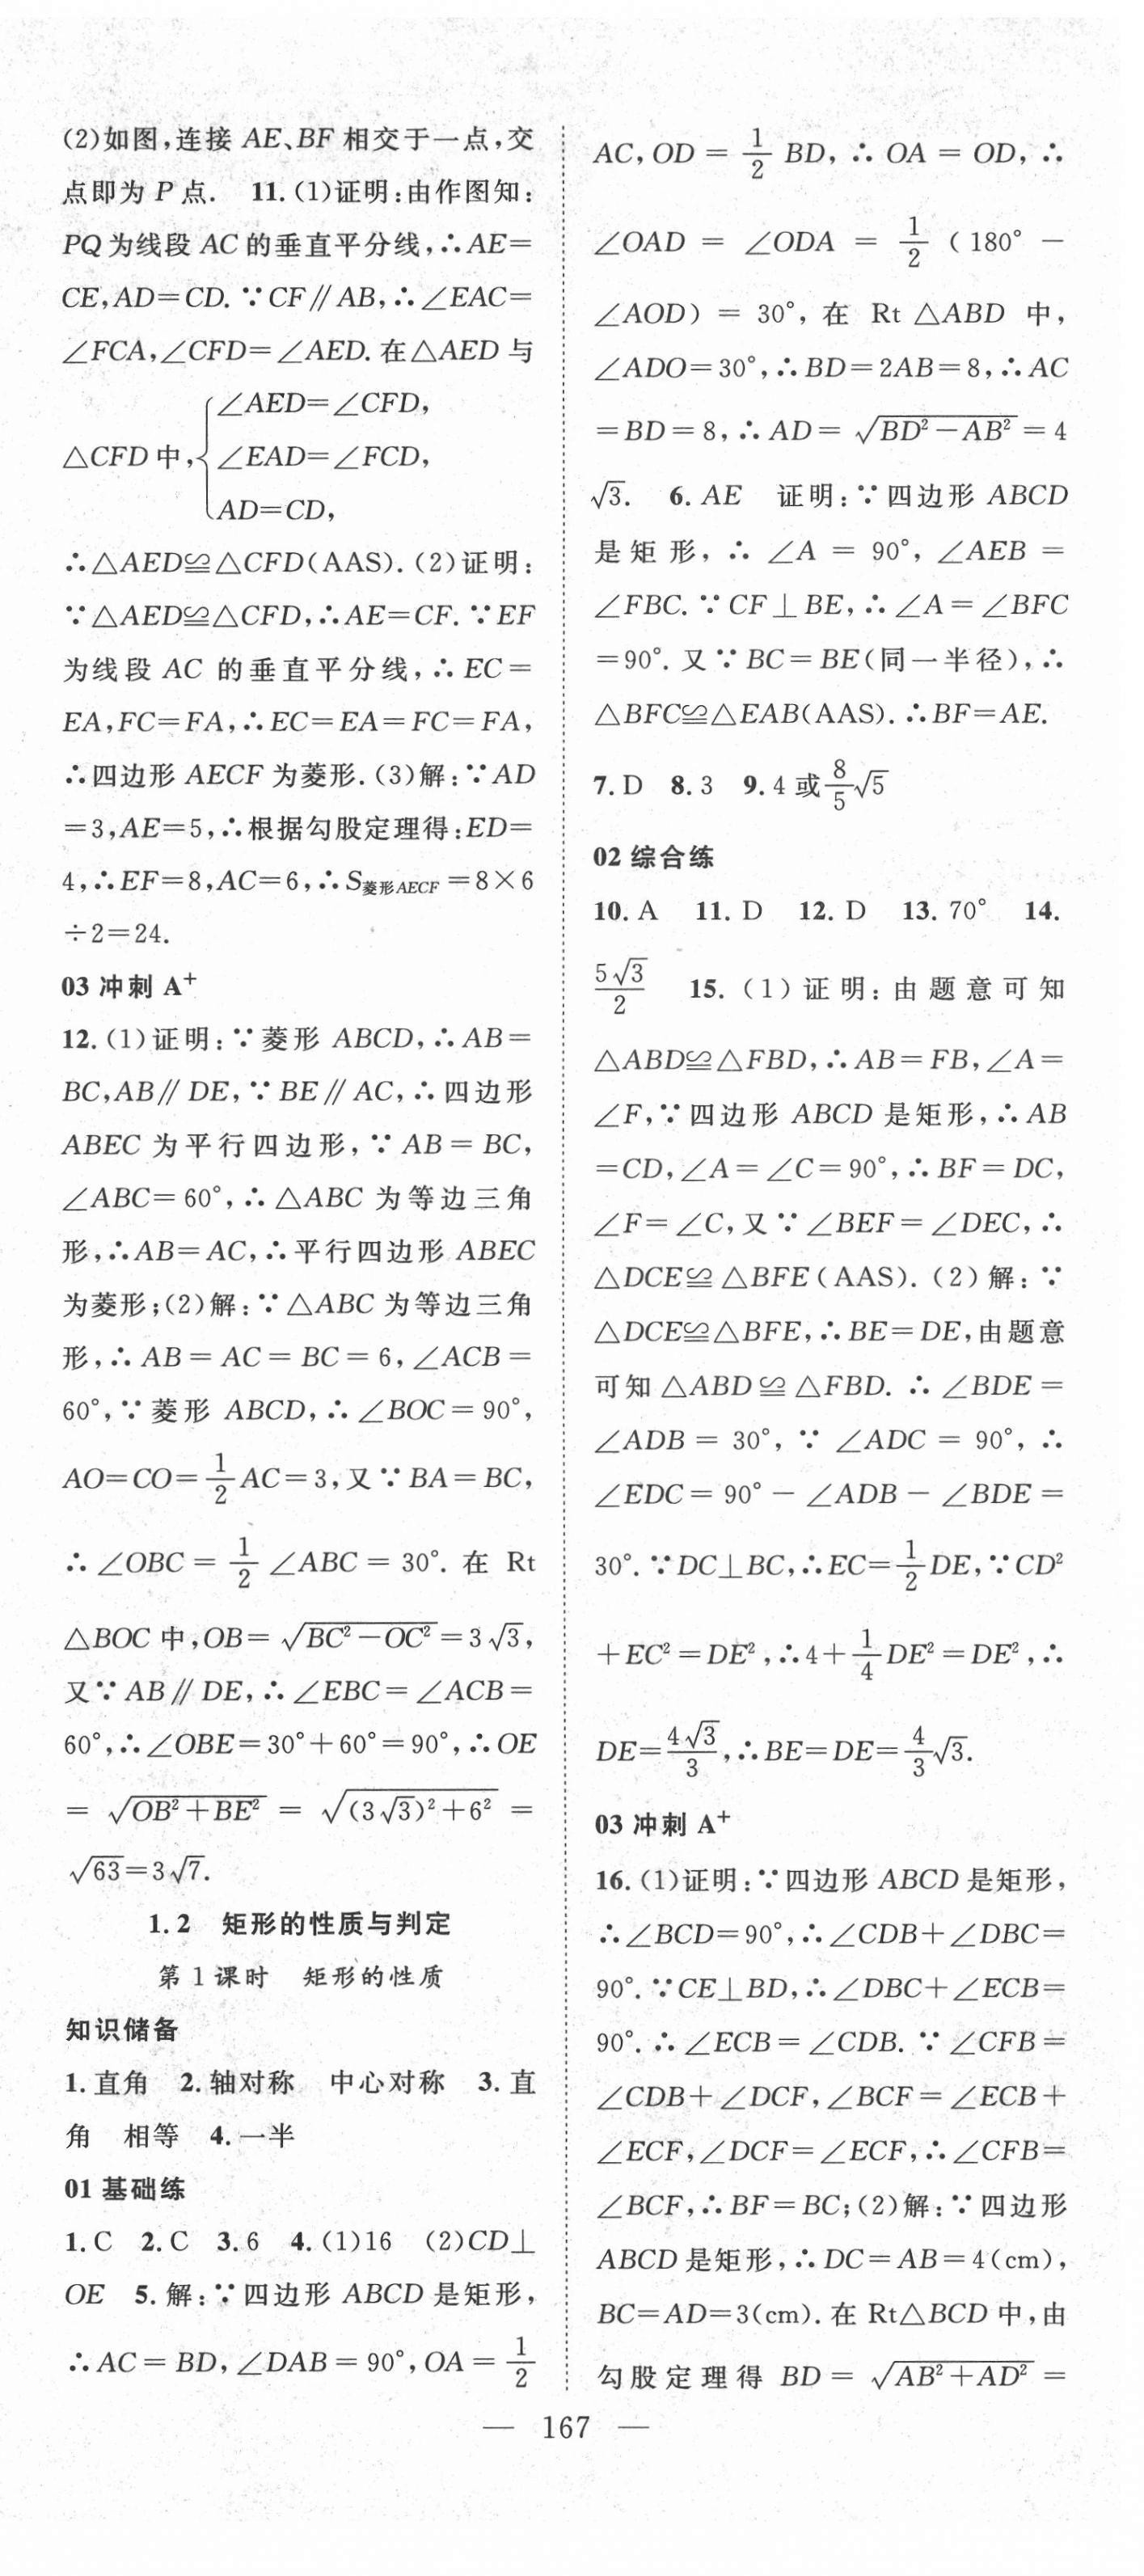 (2)如图,连接 AE、BF 相交于一点,交
点即为 P 点. 11. (1)证明:由作图知:
PQ 为线段 AC 的垂直平分线,∴AE=
CE,AD=CD. ∵CF∥AB,∴∠EAC=
∠FCA,∠CFD=∠AED. 在△AED 与
∠AED=∠CFD,
△CFD 中,{∠EAD=∠FCD,
AD=CD,
∴△AED≌△CFD(AAS). (2)证明:
∵△AED≌△CFD,∴AE=CF. ∵EF
为线段 AC 的垂直平分线,∴EC=
EA,FC=FA,∴EC=EA=FC=FA,
∴四边形 AECF 为菱形. (3)解:∵AD
=3,AE=5,∴根据勾股定理得:ED=
4,∴EF=8,AC=6,∴S菱形AECF=8×6
÷2=24.
03 冲刺 A⁺
12. (1)证明:∵菱形 ABCD,∴AB=
BC,AB∥DE,∵BE∥AC,∴四边形
ABEC 为平行四边形,∵AB=BC,
∠ABC=60°,∴△ABC 为等边三角
形,∴AB=AC,∴平行四边形 ABEC
为菱形;(2)解:∵△ABC 为等边三角
形,∴AB=AC=BC=6,∠ACB=
60°,∵菱形 ABCD,∴∠BOC=90°,
AO=CO=1/2AC=3,又∵BA=BC,
∴∠OBC=1/2∠ABC=30°. 在 Rt
△BOC 中,OB=√(BC²-OC²)=3√3,
又∵AB∥DE,∴∠EBC=∠ACB=
60°,∴∠OBE=30°+60°=90°,∴OE
=√(OB²+BE²)=√((3√3)²+6²)=
√63=3√7.
1.2 矩形的性质与判定
第 1 课时 矩形的性质
知识储备
1. 直角 2. 轴对称 中心对称 3. 直
角 相等 4. 一半
01 基础练
1. C 2. C 3. 6 4. (1)16 (2)CD⊥
OE 5. 解:∵四边形 ABCD 是矩形,
∴AC=BD,∠DAB=90°,OA=1/2
AC,OD=1/2BD,∴OA=OD,∴
∠OAD=∠ODA=1/2(180°-
∠AOD)=30°,在 Rt△ABD 中,
∠ADO=30°,∴BD=2AB=8,∴AC
=BD=8,∴AD=√(BD²-AB²)=4
√3. 6. AE 证明:∵四边形 ABCD
是矩形,∴∠A=90°,∠AEB=
∠FBC. ∵CF⊥BE,∴∠A=∠BFC
=90°. 又∵BC=BE(同一半径),∴
△BFC≌△EAB(AAS). ∴BF=AE.
7. D 8. 3 9. 4 或 8/5√5
02 综合练
10. A 11. D 12. D 13. 70° 14.
5√3/2 15. (1)证明:由题意可知
△ABD≌△FBD,∴AB=FB,∠A=
∠F,∵四边形 ABCD 是矩形,∴AB
=CD,∠A=∠C=90°,∴BF=DC,
∠F=∠C,又∵∠BEF=∠DEC,∴
△DCE≌△BFE(AAS). (2)解:∵
△DCE≌△BFE,∴BE=DE,由题意
可知△ABD≌△FBD. ∴∠BDE=
∠ADB=30°,∵∠ADC=90°,∴
∠EDC=90°-∠ADB-∠BDE=
30°. ∵DC⊥BC,∴EC=1/2DE,∵CD²
+EC²=DE²,∴4+1/4DE²=DE²,∴
DE=4√3/3,∴BE=DE=4/3√3.
03 冲刺 A⁺
16. (1)证明:∵四边形 ABCD 是矩形,
∴∠BCD=90°,∴∠CDB+∠DBC=
90°. ∵CE⊥BD,∴∠DBC+∠ECB=
90°. ∴∠ECB=∠CDB. ∵∠CFB=
∠CDB+∠DCF,∠BCF=∠ECB+
∠ECF,∠DCF=∠ECF,∴∠CFB=
∠BCF,∴BF=BC;(2)解:∵四边形
ABCD 是矩形,∴DC=AB=4(cm),
BC=AD=3(cm). 在 Rt△BCD 中,由
勾股定理得 BD=√(AB²+AD²)=
— 167 —